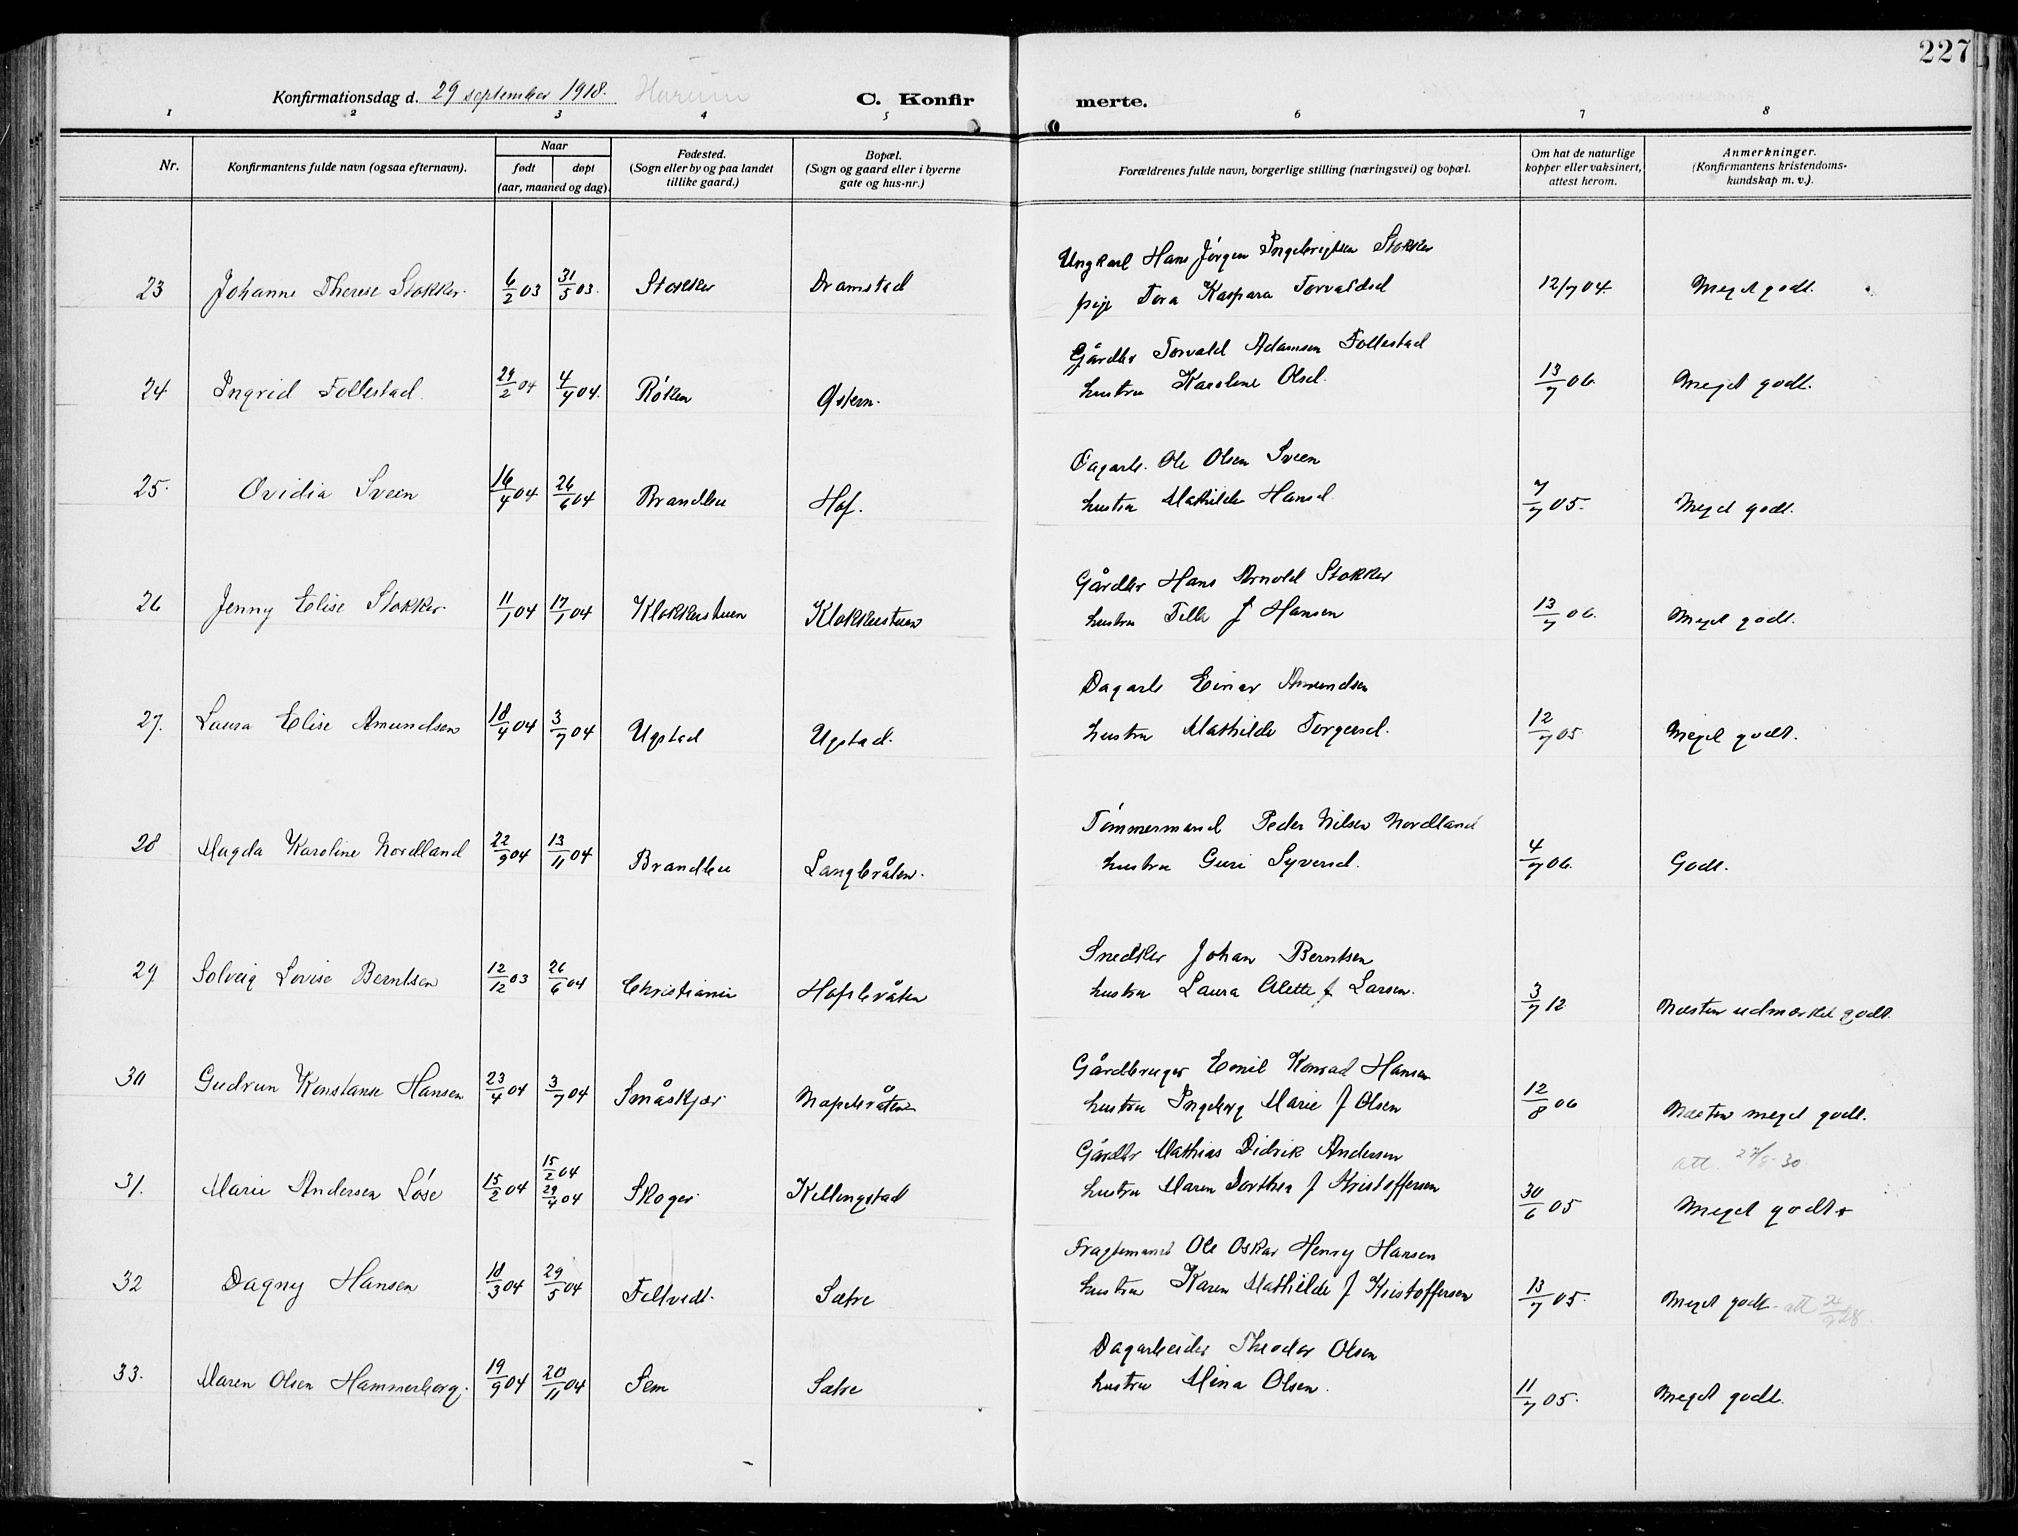 227
Konfirmationsdag d. 29 september 1918. Hurum
C. Konfirmerte.
1 2 3 4 5 6 7 8
Nr.
Konfirmantens fulde navn (ogsaa efternavn).
Naar
født døpt
(aar, maaned og dag).
Fødested.
(Sogn eller by og paa landet
tillike gaard.)
Bopæl.
(Sogn og gaard eller i byerne
gate og hus-nr.)
Forældrenes fulde navn, borgerlige stilling (næringsvei) og bopæl.
Om hat de naturlige
kopper eller vaksinert,
attest herom.
Anmerkninger.
(Konfirmantens kristendoms-
kundskap m. v.).
Ungkarl Hans Jørgen Ingebrigtsen Stokker
23 Johanne Therese Stokker. 6/2 03 31/5 03. Stokker Dramstad pige Tora Kaspara Torvaldsd 12/7 04. Meget godt.
Gårdbr Torvald Adamsen Follestad
24 Ingrid Follestad. 29/2 04 4/4 04. Røken Østern. hustru Karoline Olsd. 13/7 06 Meget godt.
Dagarb. Ole Olsen Sveen
25. Ovidia Sveen 16/4 04 26/6 04 Brandbu Hof. hustru Mathilde Hansd. 7/7 05. Meget godt.
Gårdbr Hans Arnold Stokker
26 Jenny Elise Stokker 11/1 04 17/1 04 Klokkerstuen Klokkerstuen hustru Tilla f Hansen 13/7 06. Meget godt.
Dagarb Einar Amundsen
27. Laura Elise Amundsen 18/4 04 3/7 04 Ugstad Ugstad. hustru Mathilde Torgersd. 12/7 05. Meget godt.
Tømmermand Peder Nilsen Nordland
28 Magda Karoline Nordland 22/9 04 13/11 04 Brandbu Langbråten. hustru Guri Syversd. 4/7 06. Godt.
Snedker Johan Berntsen
29 Solveig Lovise Berntsen 12/12 03 26/6 04 Christiania Hofsbråten hustru Laura Alette f Larsen. 3/7 12 Næsten udmærket godt.
Gårdbruger Emil Konrad Hansen
30 Gudrun Konstanse Hansen 23/4 04 3/7 04 Småskjær Mapebråten hustru Ingeborg Marie f Olsen 12/8 06 Næsten meget godt.
Gårdbr Mathias Didrik Andersen att. 27/8-30
31. Marie Andersen Løse 15/2 04 15/2 04 29/4 04 Skoger Killingstad hustru Maren Dorthea f Kristoffersen 30/6 05 Meget godt
Fragtemand Ole Oskar Henry Hansen
32 Dagny Hansen 18/3 04 29/5 04 Filtvedt. Sætre hustru Karen Mathilde f Kristoffersen 13/7 05. Meget godt. att
Dagarbeider Theodor Olsen
33. Maren Olsen Hammerborg. 19/9 04 20/11 04 Sem Sætre hustru Mina Olsen. 11/7 05. Meget godt.